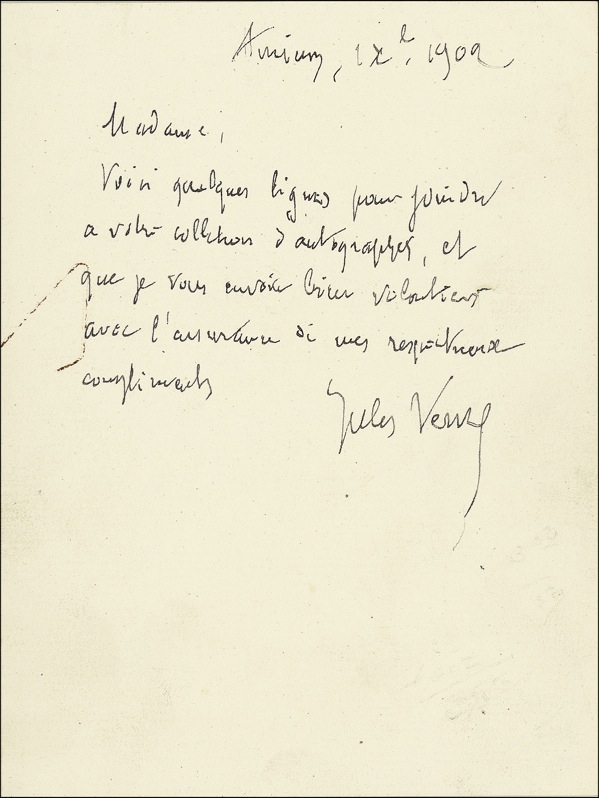 Amiens, 1 X^e. 1902
Madame,
Voici quelques lignes pour joindre
a votre collection d'autographes, et
que je vous envoie bien volontiers
avec l'assurance de mes respectueux
compliments
Jules Verne